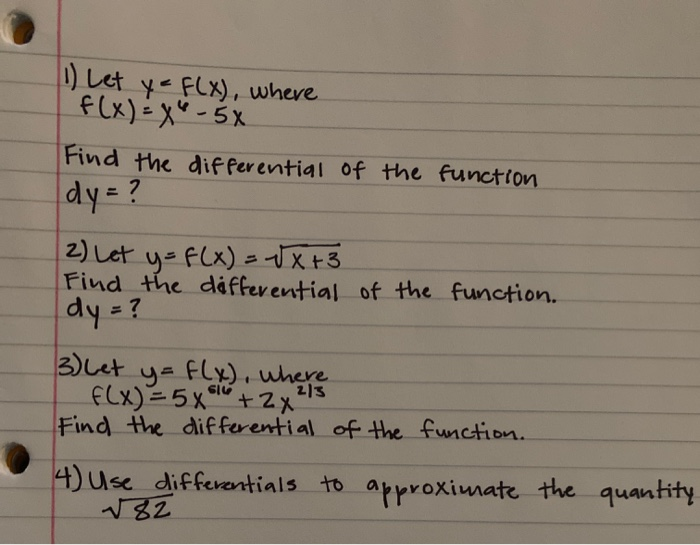 1) Let y = f(x), where
f(x) = x⁶ - 5x
Find the differential of the function
dy = ?
2) Let y = f(x) = √x+3
Find the differential of the function.
dy = ?
3) Let y = f(x), where
f(x) = 5x^5/6 + 2x^2/3
Find the differential of the function.
4) Use differentials to approximate the quantity
√82